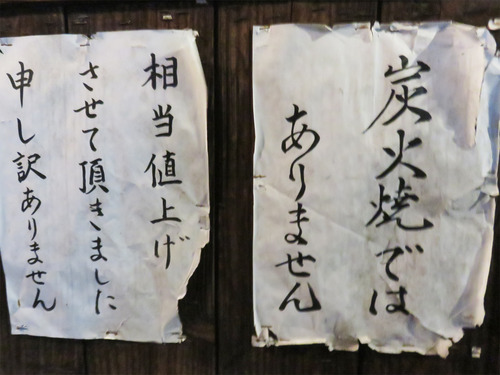 炭火焼では
ありません
相当値上げ
させて頂きました
申し訳ありません